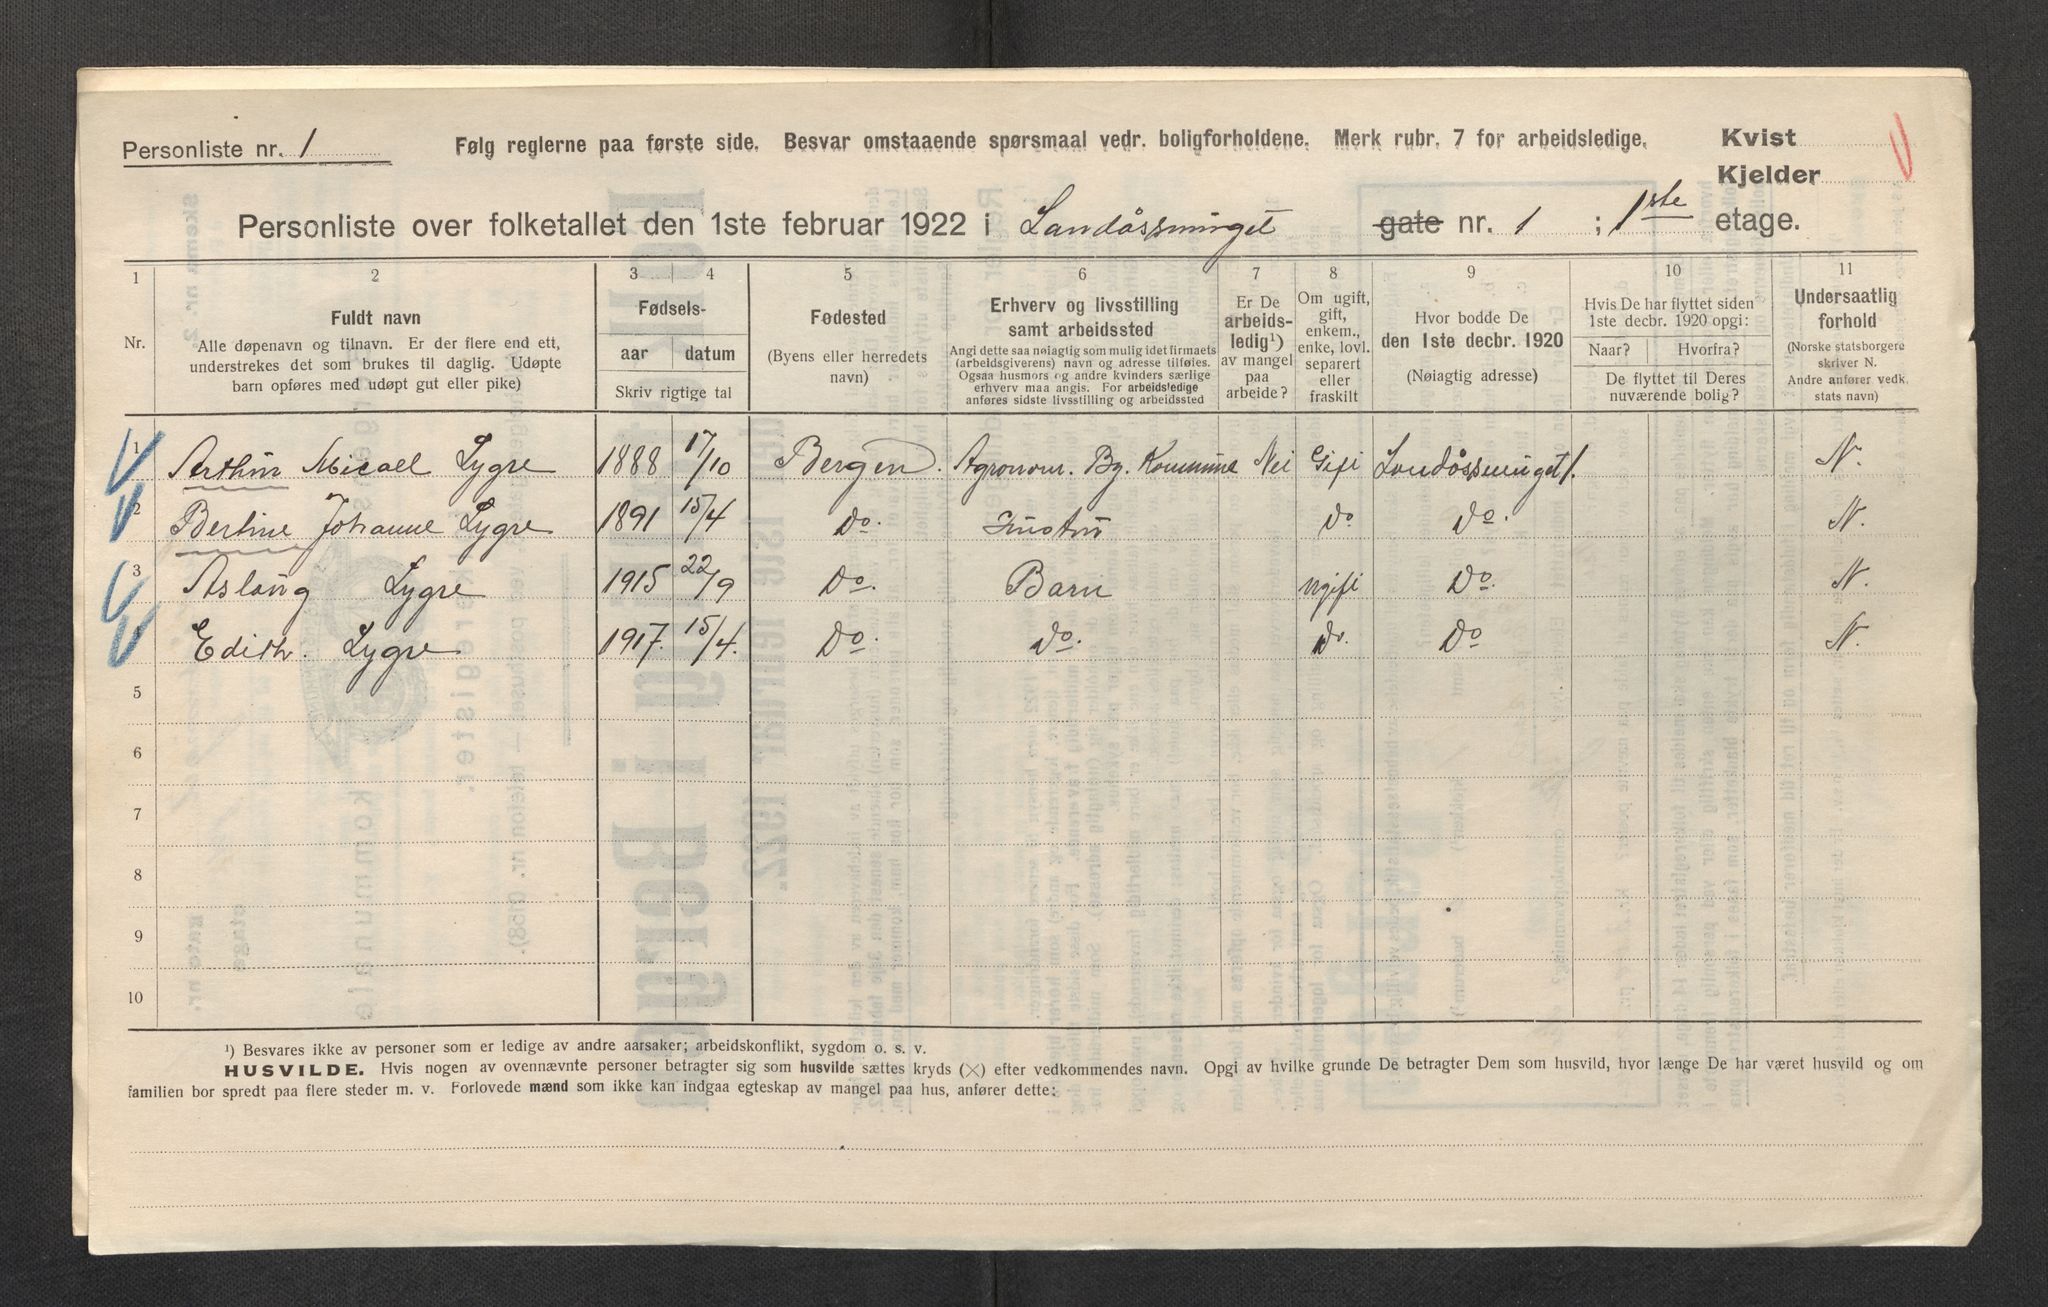 Personliste nr. 1
Følg reglerne paa første side. Besvar omstaaende spørsmaal vedr. boligforholdene. Merk rubr. 7 for arbeidsledige.
Kvist
Kjelder
Personliste over folketallet den 1ste februar 1922 i Landåssvinget gate nr. 1 ; 1ste etage.
1 2 3 4 5 6 7 8 9 10 11
Nr.
Fuldt navn
Alle døpenavn og tilnavn. Er der flere end ett,
understrekes det som brukes til daglig. Udøpte
barn opføres med udøpt gut eller pike)
Fødsels-
aar datum
Skriv rigtige tal
Fødested
(Byens eller herredets
navn)
Erhverv og livsstilling
samt arbeidssted
Angi dette saa nøiagtig som mulig idet firmaets
(arbeidsgiverens) navn og adresse tilføies.
Ogsaa husmors og andre kvinders særlige
erhverv maa angis. For arbeidsledige
anføres sidste livsstilling og arbeidssted
Er De
arbeids-
ledig¹)
av mangel
paa
arbeide?
Om ugift,
gift,
enkem.,
enke, lovl.
separert
eller
fraskilt
Hvor bodde De
den 1ste decbr. 1920
(Nøiagtig adresse)
Hvis De har flyttet siden
1ste decbr. 1920 opgi:
Naar? Hvorfra?
De flyttet til Deres
nuværende bolig?
Undersaatlig
forhold
(Norske statsborgere
skriver N.
Andre anfører vedk.
stats navn)
1 Arthur Micael Lygre 1888 17/10 Bergen. Agronom. Bg. Kommune Nei Gift Landåssvinget 1. N.
2 Bertine Johanne Lygre 1891 15/4 Do. Hustru Do Do. N.
3 Aslaug Lygre 1915 22/9 Do. Barn ugift Do. N.
Edith. Lygre 1917. 15/4. Do. Do. Do. Do N.
5
6
7
8
9
10
¹) Besvares ikke av personer som er ledige av andre aarsaker; arbeidskonflikt, sygdom o. s. v.
HUSVILDE. Hvis nogen av ovennævnte personer betragter sig som husvilde sættes kryds (×) efter vedkommendes navn. Opgi av hvilke grunde De betragter Dem som husvild, hvor længe De har været husvild og om
familien bor spredt paa flere steder m. v. Forlovede mænd som ikke kan indgaa egteskap av mangel paa hus, anfører dette: